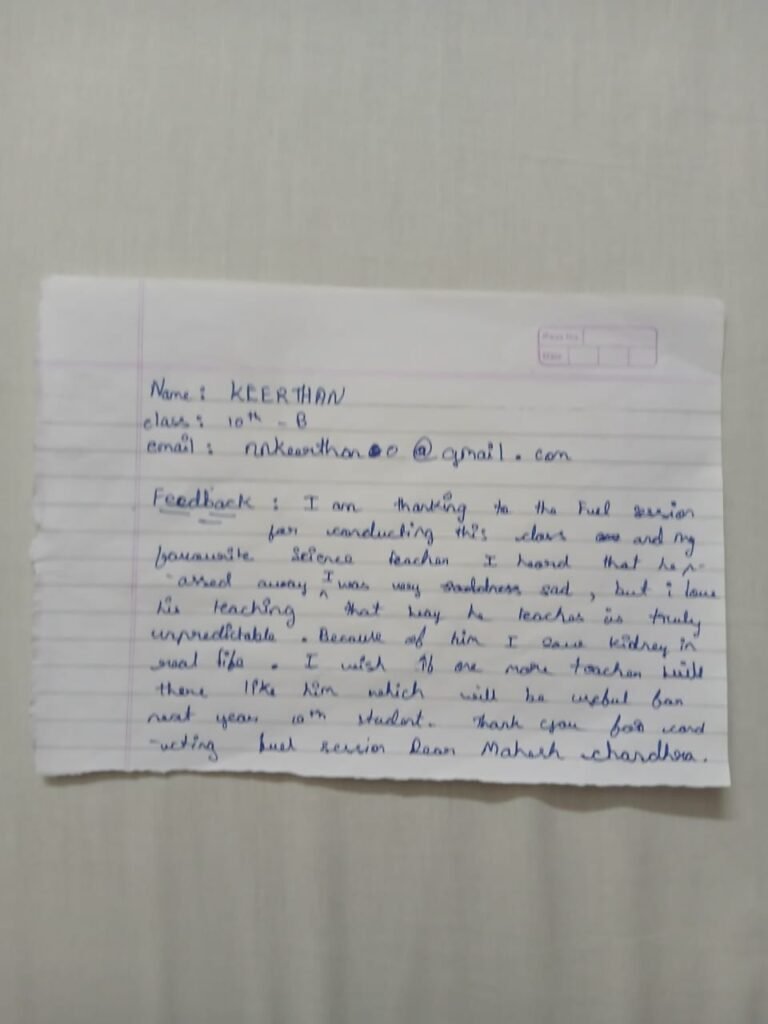 Page No.
Date
Name : KEERTHAN
class : 10th - B
email : nnkeerthan00@gmail.com
Feedback : I am thanking to the Fuel session
for conducting this class and my
favourite science teacher I heard that he p-
-assed away I was very sad, but i love
his teaching that way he teaches is truly
unpredictable. Because of him I saw kidney in
real life. I wish if one more teacher will
there like him which will be useful for
next year 10th student. Thank you for cond
-ucting fuel session Dear Mahesh chardhra.